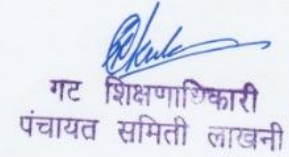 गट शिक्षणाधिकारी
पंचायत समिती लाखनी